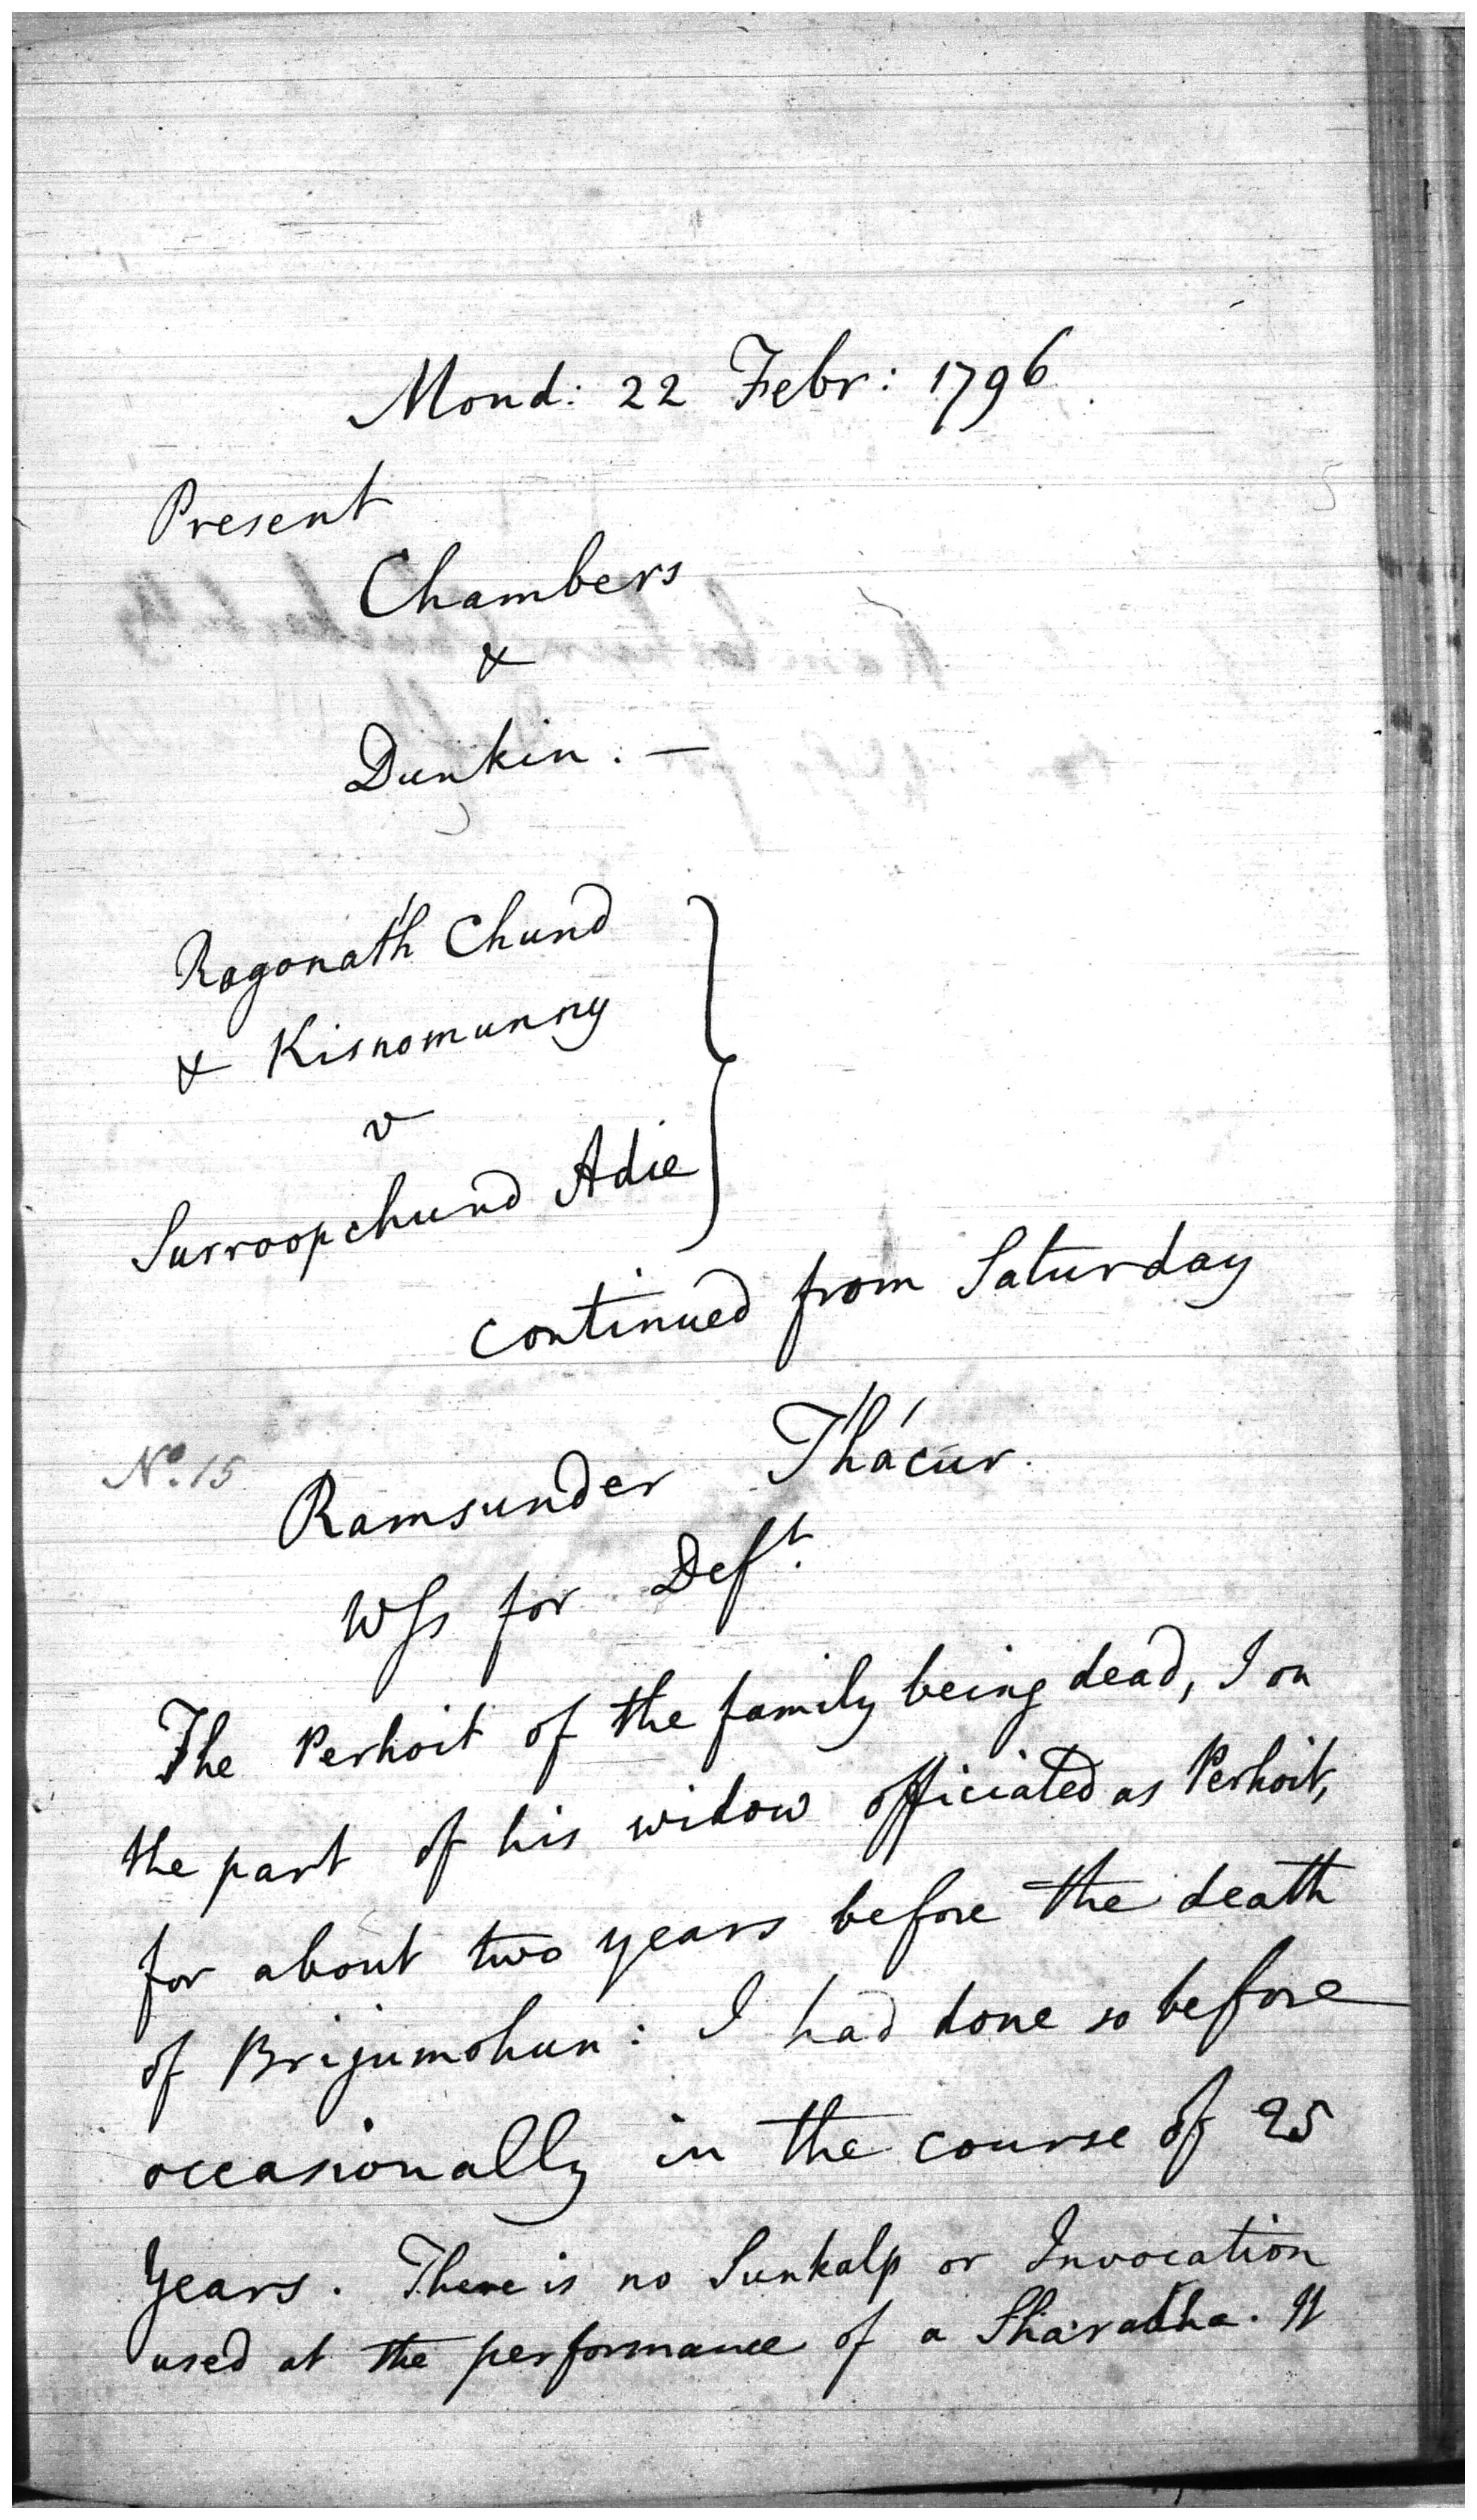 Mond: 22 Febr: 1796
Present
Chambers
&
Dunkin. —
Rogonath Chund
& Kisnomunny
v
Surroopchund Adie
continued from Saturday
No. 15
Ramsunder Thácur.
Wss for Deft.
The Perhoit of the family being dead, I on
the part of his widow officiated as Perhoit,
for about two years before the death
of Brijumohun: I had done so before
occasionally in the course of 25
Years. There is no Sunkalp or Invocation
used at the performance of a Sháradha. It